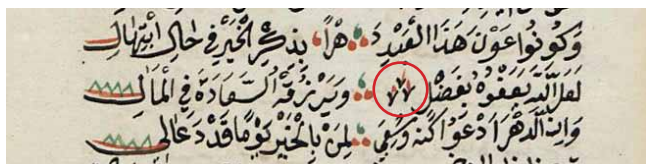 وكونوا عون هذا العبد دهرا بذكر الخير في حال ابتهال
لعل الله يعفوه بفضل ويرزقه السعادة في المال
واني الدهر ادعوا كنه وسعي لمن بالخير يوما قد دعا لي